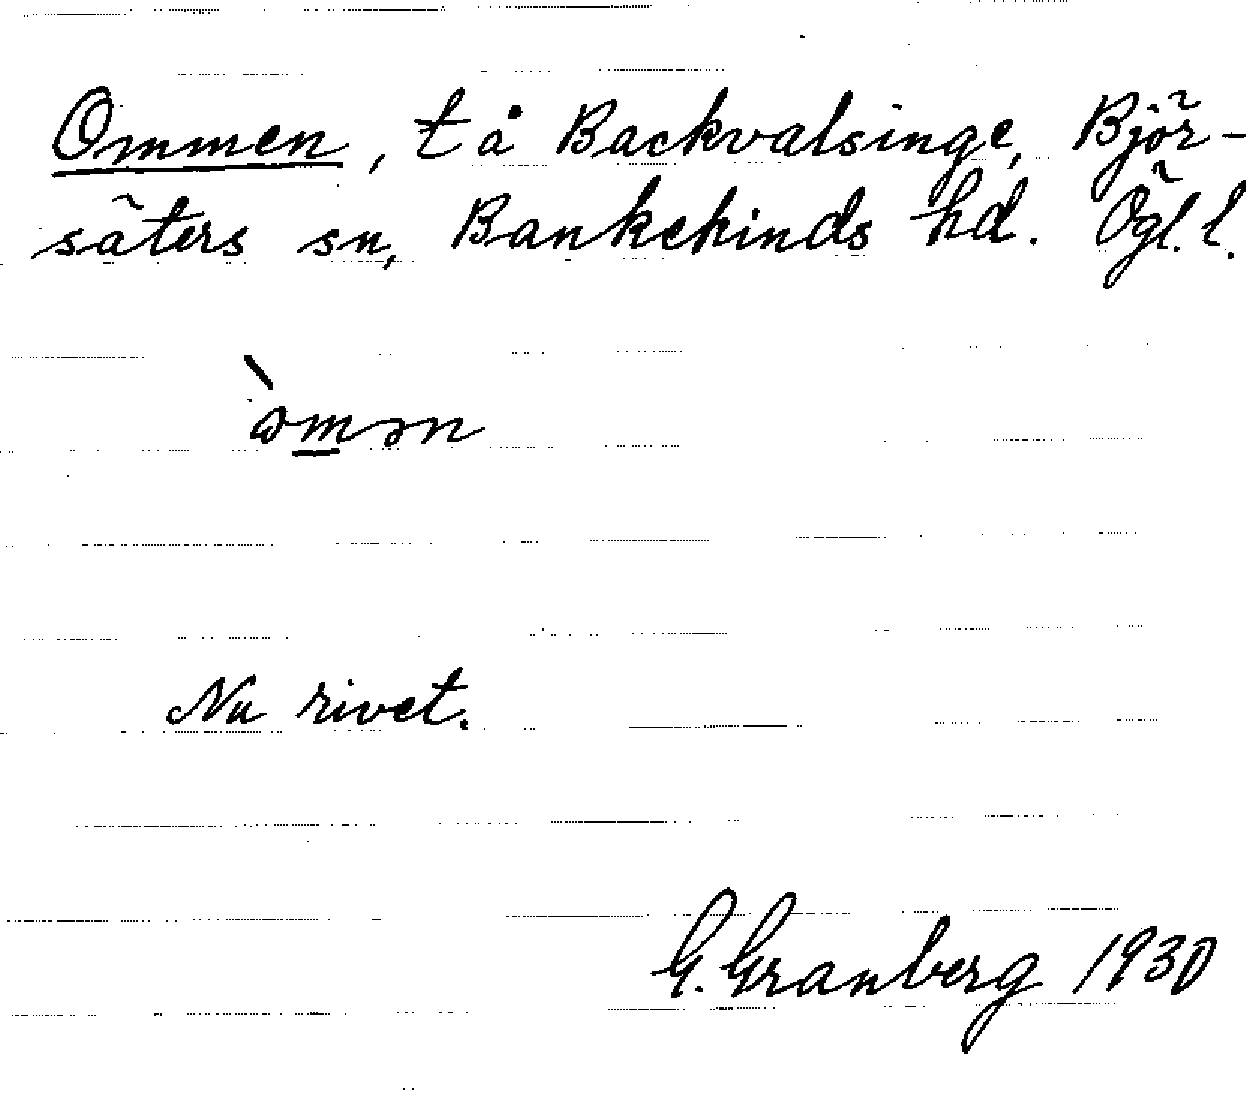 Ommen, t å Backvalsinge, Björ-
säters sn, Bankekinds hd. Ögl. l.
òmən
Nu rivet.
G. Granberg 1930